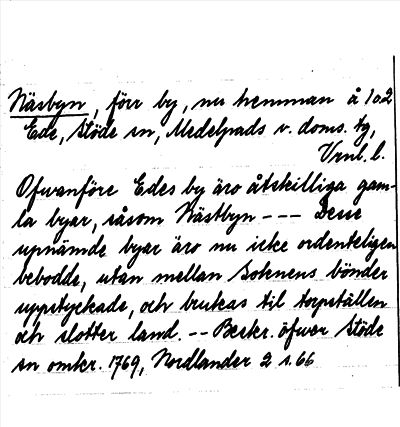 Näsbyn, förr by, nu hemman å 1o2
Ede, Stöde sn, Medelpads v. doms. tg,
Vrnl. l.
Ofwanföre Edes by äro åtskilliga gam-
la byar, såsom Nästbyn --- Desse
upnämde byar äro nu icke ordenteligen
bebodde, utan mellan Soknens bönder
uppstyckade, och brukas til torpställen
och slotter land. -- Beskr. öfwer Stöde
sn omkr. 1769, Nordlander 2 s. 66